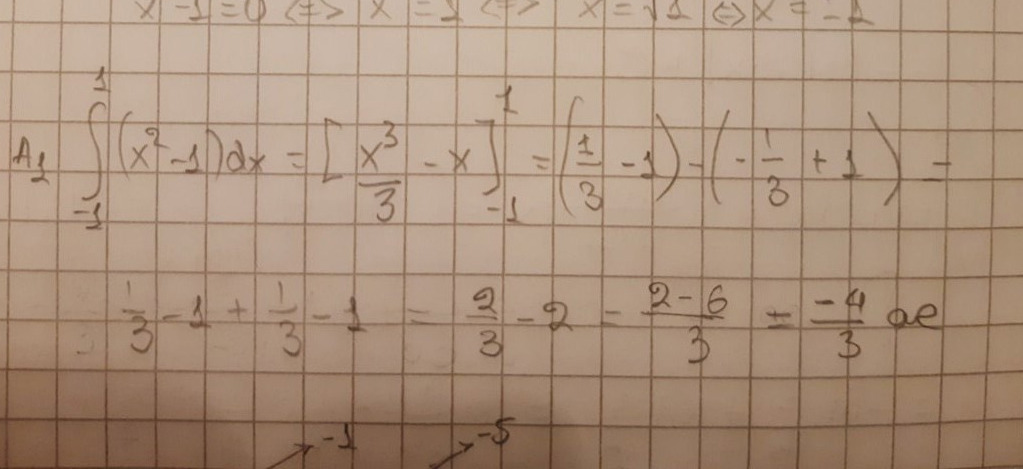 x²-1=0 <=> x²=1 <=> x=√1 <=> x=-1
A₁ ∫₋₁¹ (x²-1)dx = [x³/3 - x]₋₁¹ = (1/3 - 1) - (-1/3 + 1) =
1/3 - 1 + 1/3 - 1 = 2/3 - 2 = (2-6)/3 = -4/3 ae
-1 -5